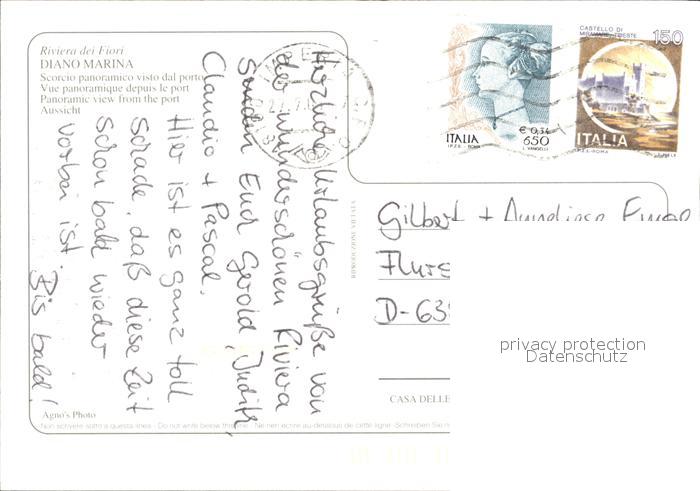 Riviera dei Fiori
DIANO MARINA
Scorcio panoramico visto dal porto
Vue panoramique depuis le port
Panoramic view from the port
Aussicht
Herzliche Urlaubsgrüße von
der wunderschönen Riviera
senden Euch Gerold, Judith,
Claudio + Pascal.
Hier ist es ganz toll
Schade, daß diese Zeit
schon bald wieder
vorbei ist. Bis bald!
Agno's Photo
Non scrivere sotto a questa linea - Do not write below this line - Ne rien ecrire au-dessous de cette ligne - Schreiben Sie
RIPRODUZIONE VIETATA
ITALIA
€ 0,34
650
I.P.Z.S. - ROMA
L. VANGELLI
CASTELLO DI
MIRAMARE - TRIESTE
150
ITALIA
I.P.Z.S. - ROMA
Gilbert + Anneliese
D-63
CASA DELLE
privacy protection
Datenschutz